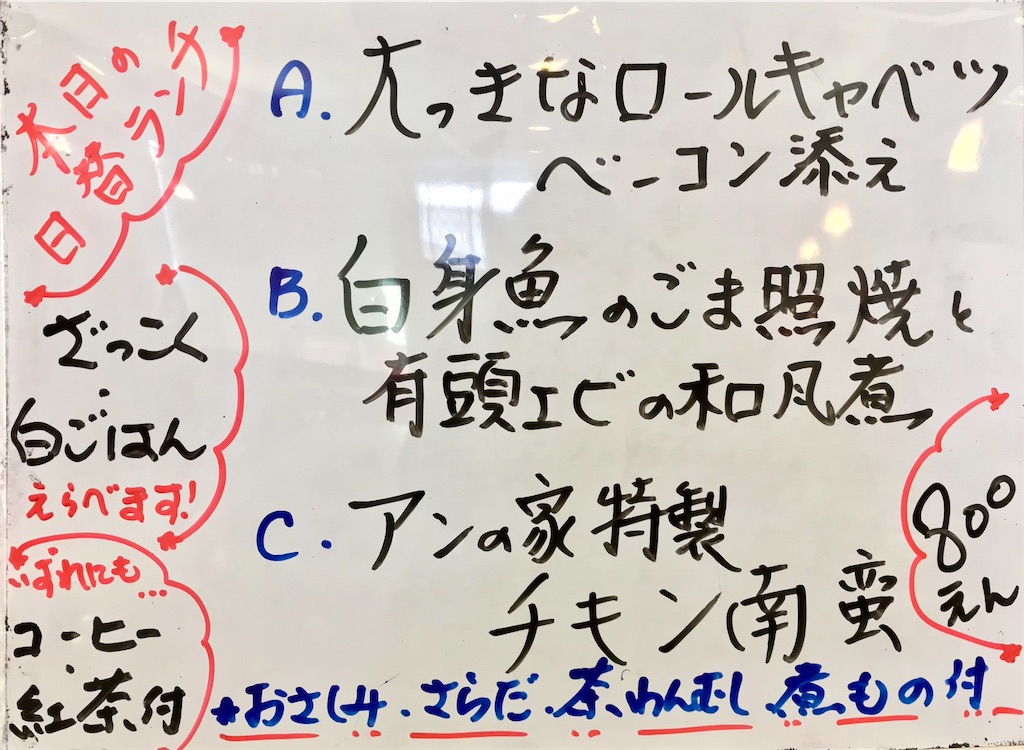 本日の
日替ランチ
A. 大っきなロールキャベツ
ベーコン添え
B. 白身魚のごま照焼と
有頭エビの和風煮
C. アンの家特製
チキン南蛮
ざっこく
・
白ごはん
えらべます!
いずれにも…
コーヒー
・
紅茶付
800
えん
★おさしみ・さらだ・茶わんむし・煮もの付